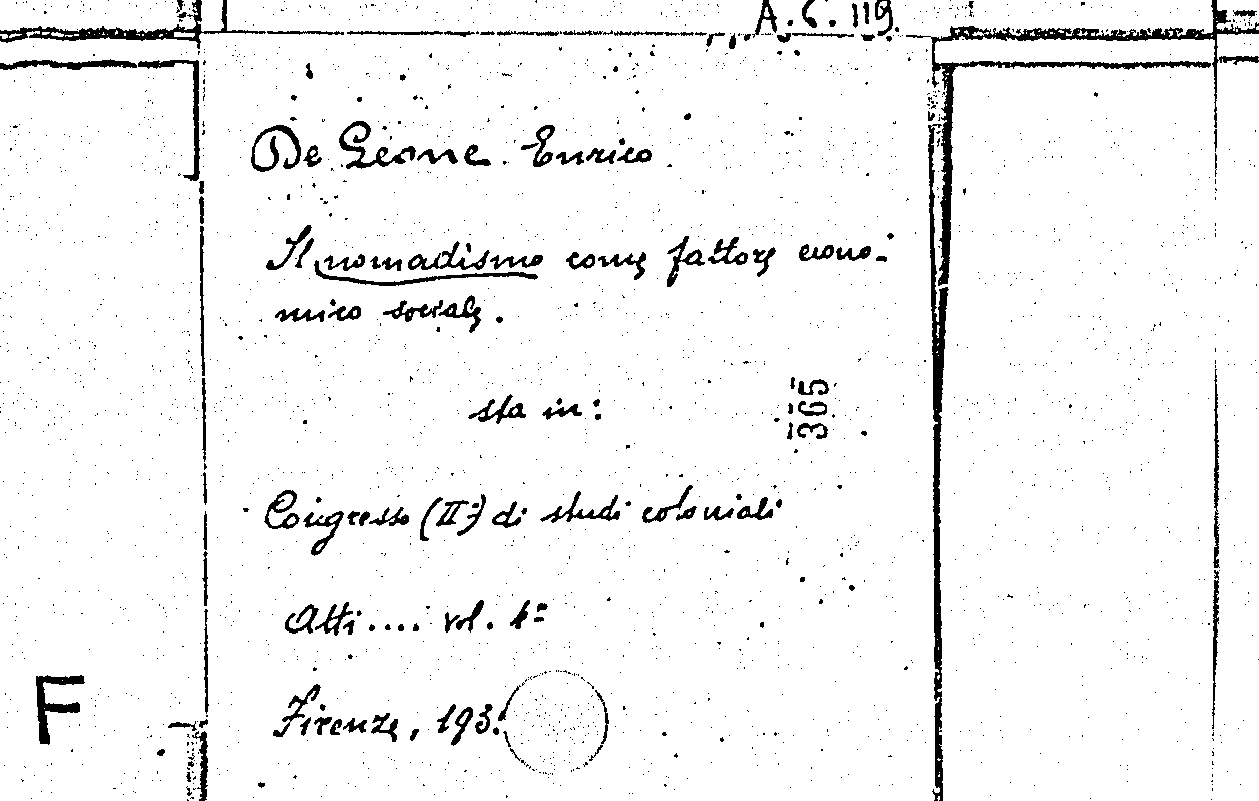 A.6.119.
De Leone Enrico.
Il nomadismo come fattore econo-
mico sociale.
sta in:
365
Congresso (IIº) di studi coloniali
Atti.... vol. 4º
Firenze, 193
F